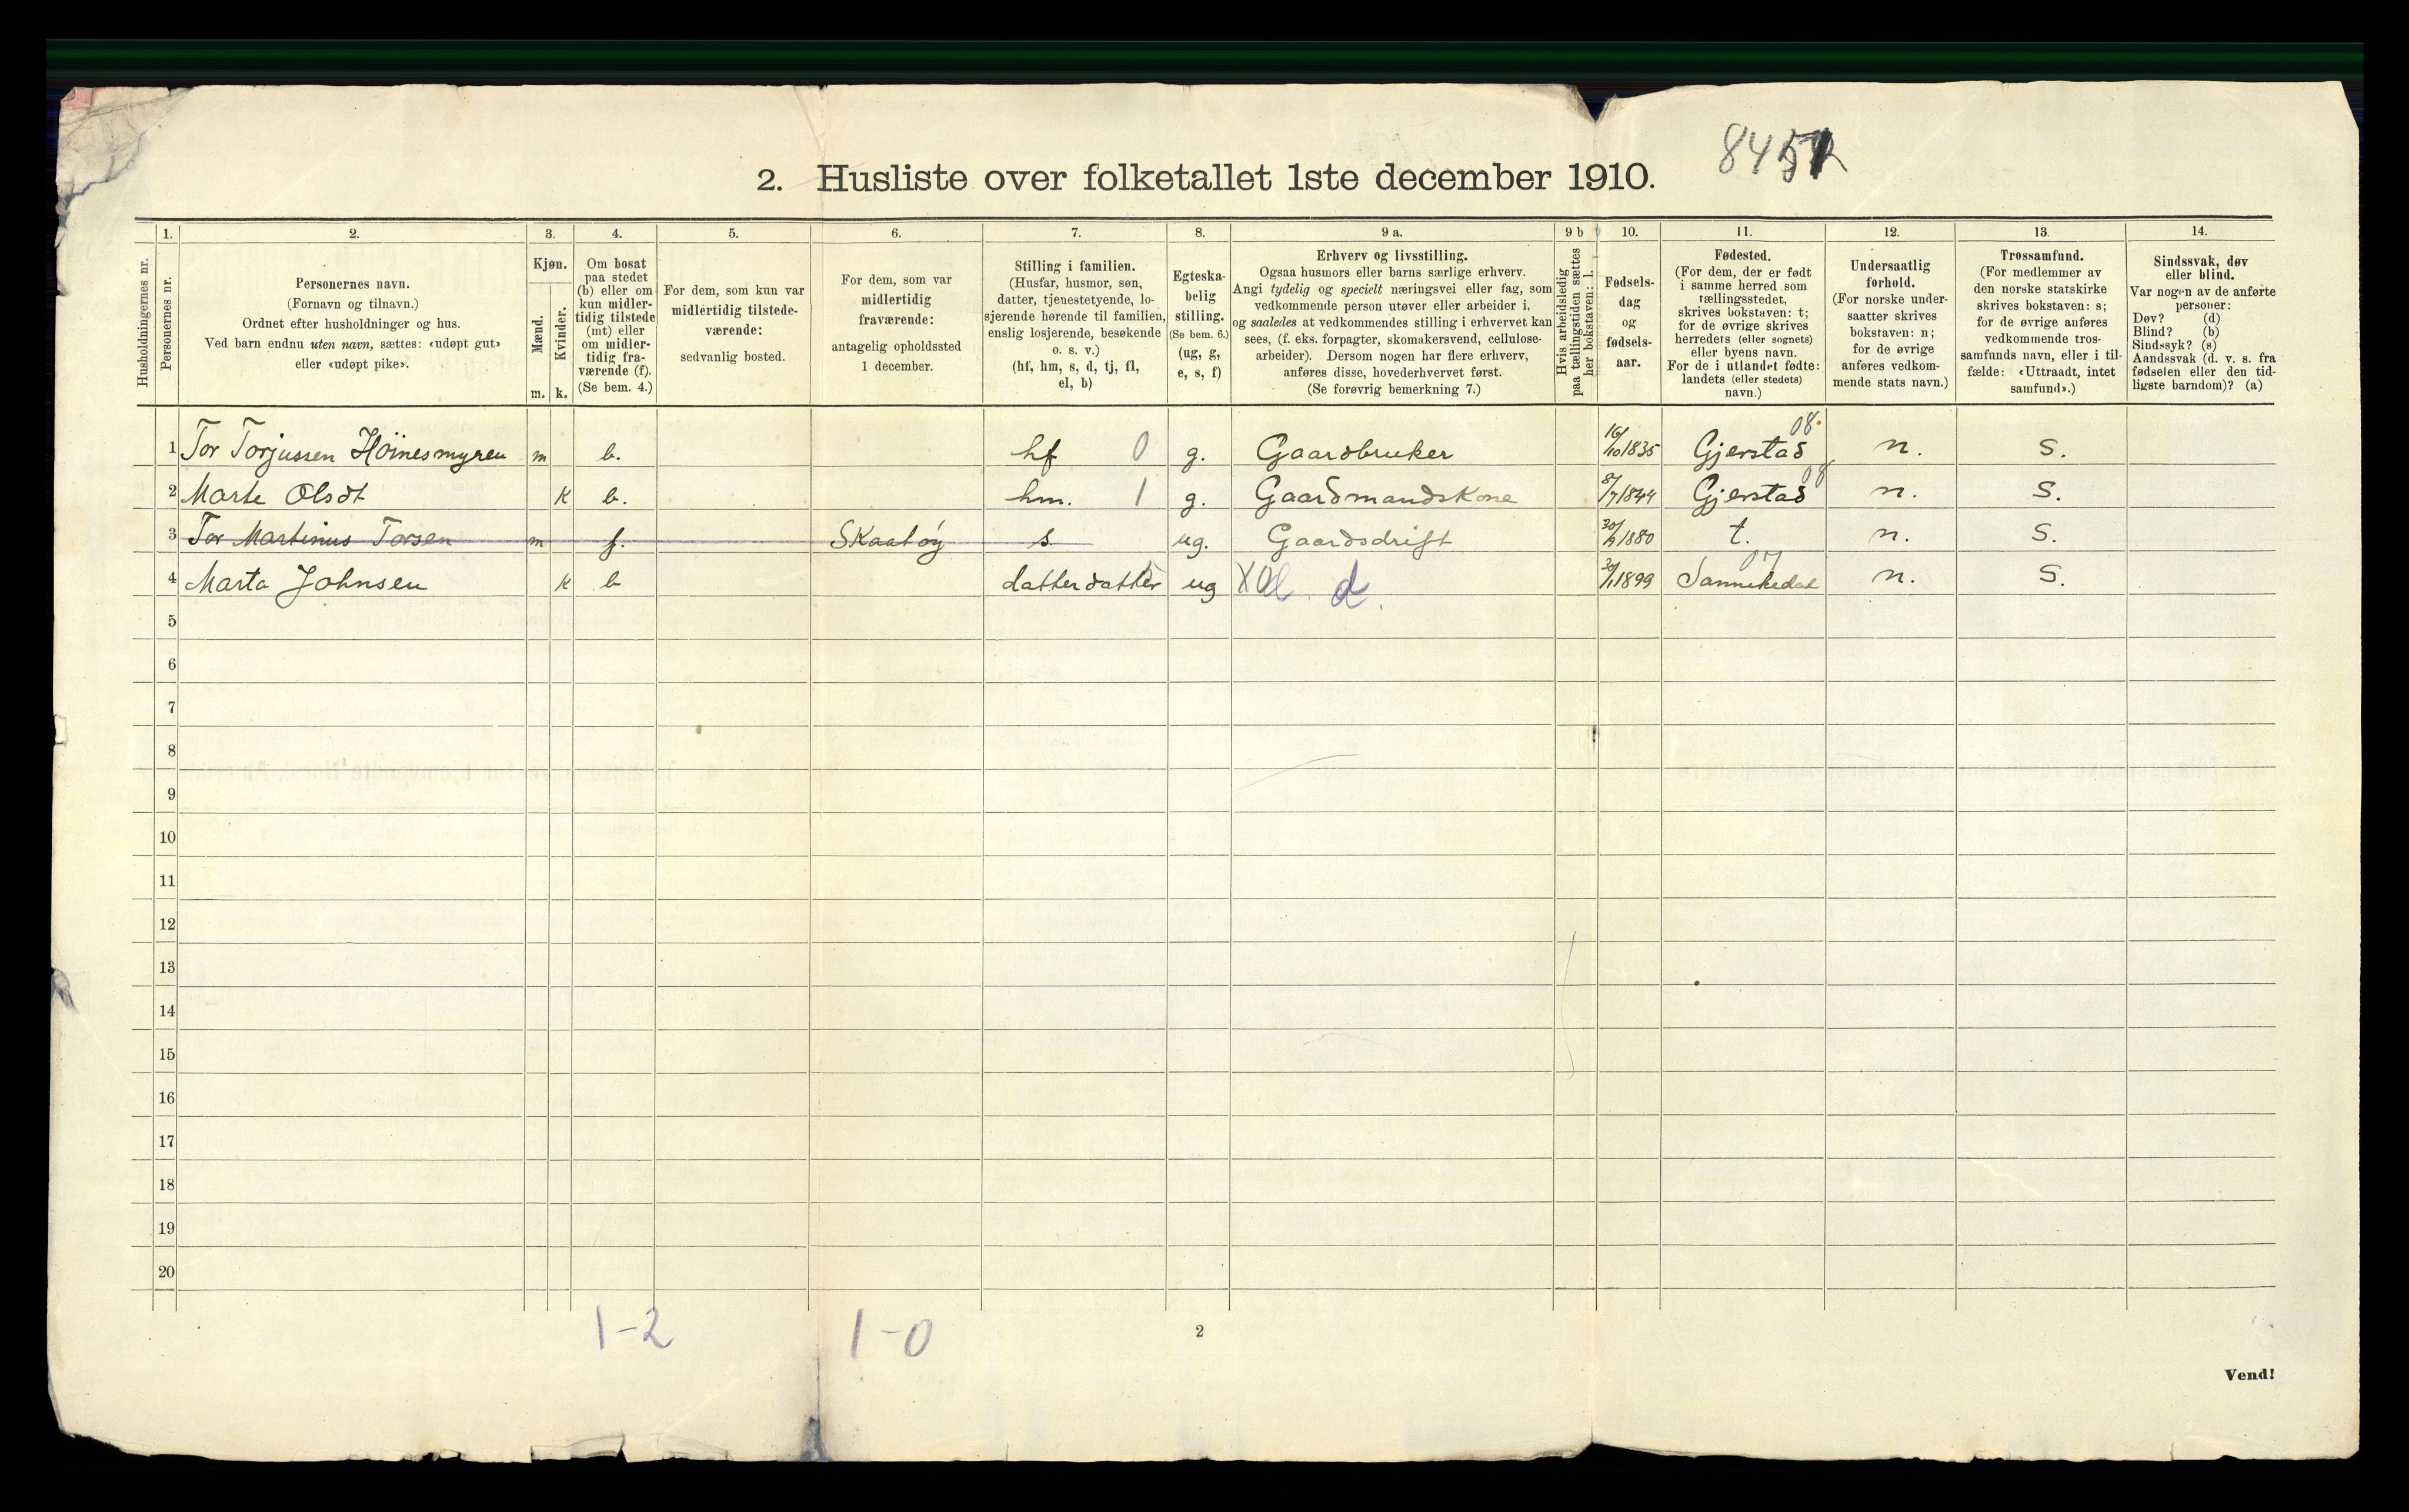 8451
2. Husliste over folketallet 1ste december 1910.
Husholdningernes nr.
1.
Personernes nr.
2.
Personernes navn.
(Fornavn og tilnavn.)
Ordnet efter husholdninger og hus.
Ved barn endnu uten navn, sættes: «udøpt gut»
eller «udøpt pike».
3.
Kjøn.
Mænd.
Kvinder.
m. k.
4.
Om bosat
paa stedet
(b) eller om
kun midler-
tidig tilstede
(mt) eller
om midler-
tidig fra-
værende (f).
(Se bem. 4.)
5.
For dem, som kun var
midlertidig tilstede-
værende:
sedvanlig bosted.
6.
For dem, som var
midlertidig
fraværende:
antagelig opholdssted
1 december.
7.
Stilling i familien.
(Husfar, husmor, søn,
datter, tjenestetyende, lo-
sjerende hørende til familien,
enslig losjerende, besøkende
o. s. v.)
(hf, hm, s, d, tj, fl,
el, b)
8.
Egteska-
belig
stilling.
(Se bem. 6.)
(ug, g,
e, s, f)
9 a.
Erhverv og livsstilling.
Ogsaa husmors eller barns særlige erhverv.
Angi tydelig og specielt næringsvei eller fag, som
vedkommende person utøver eller arbeider i,
og saaledes at vedkommendes stilling i erhvervet kan
sees, (f. eks. forpagter, skomakersvend, cellulose-
arbeider). Dersom nogen har flere erhverv,
anføres disse, hovederhvervet først.
(Se forøvrig bemerkning 7.)
9 b
Hvis arbeidsledig
paa tællingstiden sættes
her bokstaven: l.
10.
Fødsels-
dag
og
fødsels-
aar.
11.
Fødested.
(For dem, der er født
i samme herred som
tællingsstedet,
skrives bokstaven: t;
for de øvrige skrives
herredets (eller sognets)
eller byens navn.
For de i utlandet fødte:
landets (eller stedets)
navn.)
12.
Undersaatlig
forhold.
(For norske under-
saatter skrives
bokstaven: n;
for de øvrige
anføres vedkom-
mende stats navn.)
13.
Trossamfund.
(For medlemmer av
den norske statskirke
skrives bokstaven: s;
for de øvrige anføres
vedkommende tros-
samfunds navn, eller i til-
fælde: «Uttraadt, intet
samfund».)
14.
Sindssvak, døv
eller blind.
Var nogen av de anførte
personer:
Døv? (d)
Blind? (b)
Sindssyk? (s)
Aandssvak (d. v. s. fra
fødselen eller den tid-
ligste barndom)? (a)
1 Tor Torjussen Höinesmyren m b. hf 0 g. Gaardbruker 16/10 1835 Gjerstad 08. n. s.
2 Marte Olsdt k b. hm. 1 g. Gaardmandskone 8/7 1844 Gjerstad 08 n. s.
3 Tor Martinus Torsen m f. Skaatöy s. ug. Gaardsdrift 1880 t. n. s.
4 Marta Johnsen k b datterdatter ug X0 d. 1899 Sannikedal 07 n. s.
5
6
7
8
9
10
11
12
13
14
15
16
17
18
19
20
1-2 1-0
2
Vend!